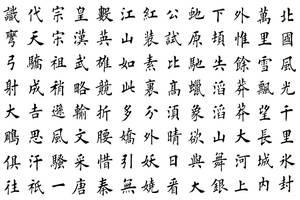 北國風光千里冰封
萬里雪飄望長城內
外惟餘莽莽大河上
下頓失滔滔山舞銀
虵原馳蠟象欲與天
公試比高須晴日看
紅裝素裹分外妖嬈
江山如此多嬌引無
數英雄競折腰惜秦
皇漢武略輸文采唐
宗宋祖稍遜風騷一
代天驕成吉思汗祇
識彎弓射大鵰俱往